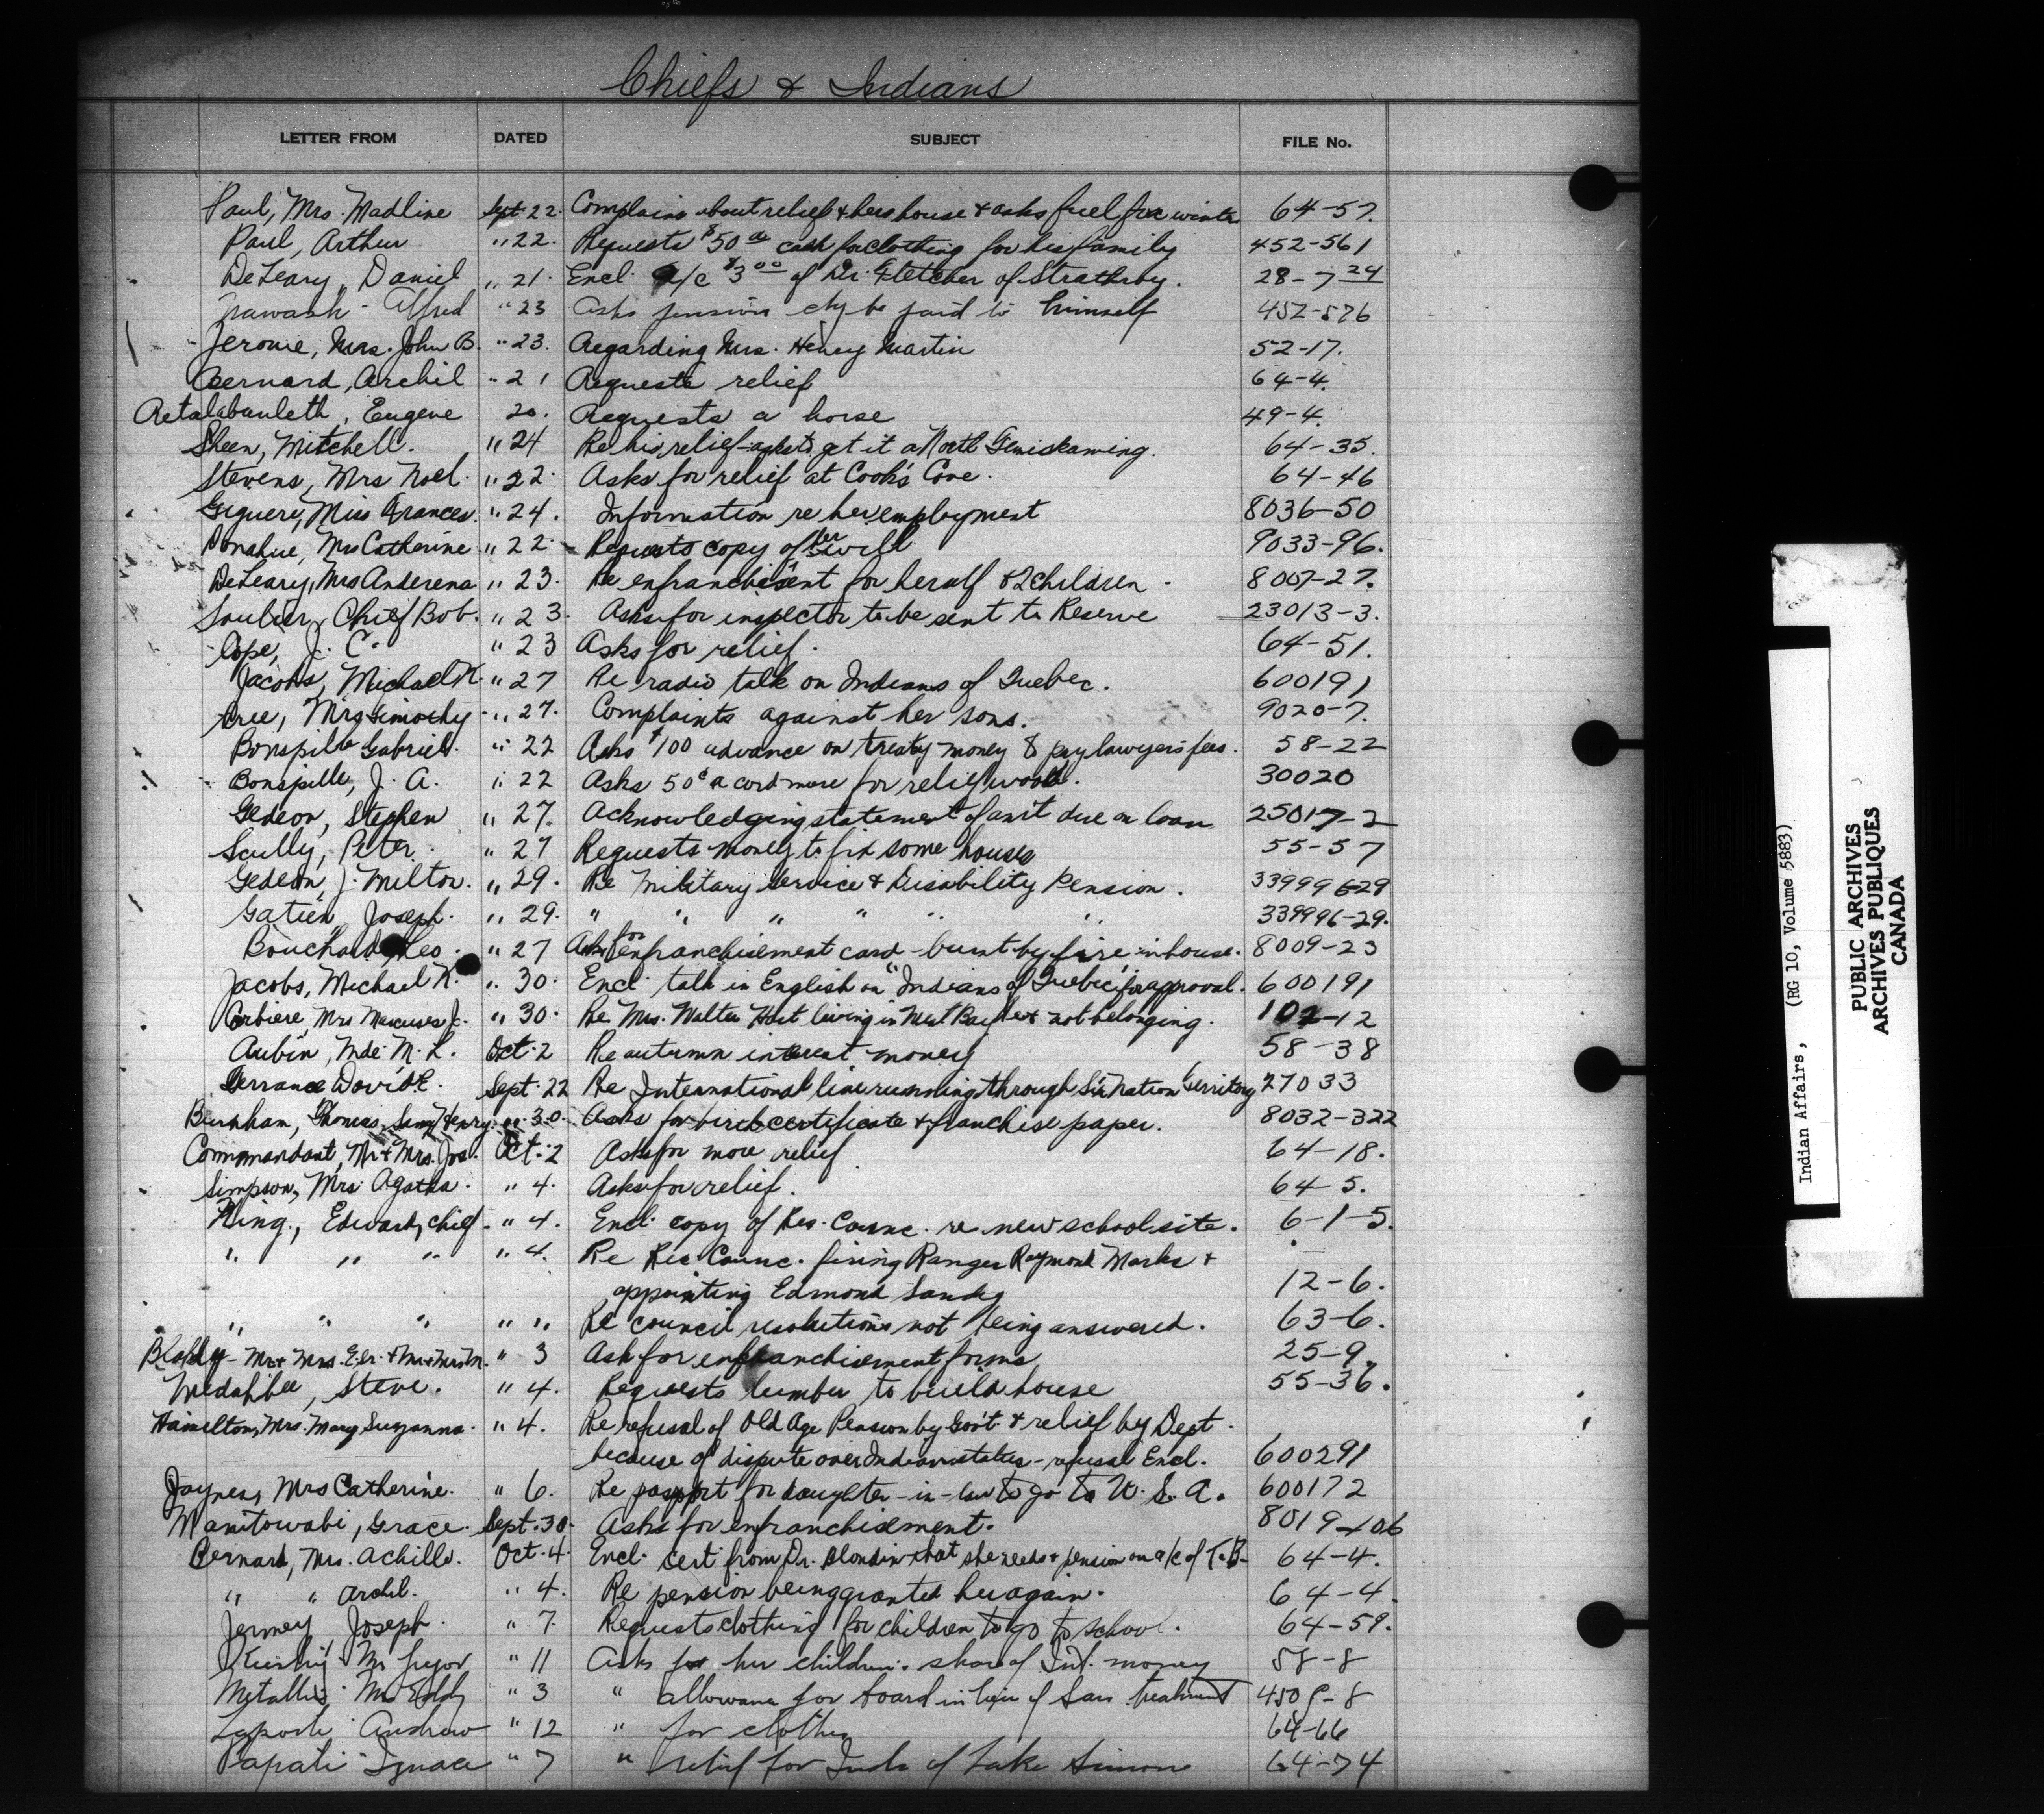 Chiefs & Indians
LETTER FROM DATED SUBJECT FILE No.
Paul, Mrs. Madline Sept 22. Complains about relief & her house & asks fuel for winter 64-57.
Paul, Arthur " 22. Requests $50 cash for clothing for his family 452-561
DeLeary, Daniel " 21. Encl. a/c $3.00 of Dr. Fletcher of Strathroy. 28-7-24
Alfred " 23 Asks pension chq be paid to himself 452-576
Jerome, Mrs. John B. " 23. Regarding Mrs. Henry Martin 52-17.
Bernard, Archil " 21 Requests relief 64-4.
Eugene 20. Requests a horse 49-4.
Sheen, Mitchell. " 24 Re his relief - asks to get it at North Temiskaming. 64-35.
Stevens, Mrs Noel. " 22. Asks for relief at Cook's Cove. 64-46
Giguere, Miss Frances. " 24. Information re her employment 8036-50
Donahue, Mrs Catherine " 22. Requests copy of her will 9033-96.
DeLeary, Mrs Anderena " 23. Re enfranchisent for herself & 2 children. 8007-27.
Soulier, Chief Bob. " 23. Asks for inspector to be sent to Reserve 23013-3.
Cope, J. C. " 23 Asks for relief. 64-51.
Jacobs, Michael K. " 27 Re radio talk on Indians of Quebec. 600191
Cree, Mrs Timothy - " 27. Complaints against her sons. 9020-7.
Bonspille Gabriel. " 22 Asks $100 advance on treaty money to pay lawyer's fees. 58-22
Bonspille, J. A. " 22 Asks 50¢ a cord more for relief wood. 30020
Gedeon, Stephen " 27. Acknowledging statement of am't due on loan 25017-2
Scully, Peter. " 27 Requests money to fix some houses 55-57
Gedeon, J. Milton. " 29. Re Military Service & Disability Pension. 339996-29
Gatien, Joseph. " 29. " " " " " " 339996-29.
Bouchard, Leo. " 27 Asks for enfranchisement card - burnt by fire in house. 8009-23
Jacobs, Michael K. " 30. Encl. talk in English on "Indians of Quebec" for approval. 600191
Corbiere, Mrs J. " 30. Re Mrs. Walter living in West Bay & not belonging. 102-12
Aubin, Mde. M. L. Oct. 2 Re autumn interest money 58-38
Terrance David E. Sept. 22 Re International line running through Six Nation territory 27033
Burnham, Thomas, Sam, Henry. " 30. Asks for birth certificate & franchise paper. 8032-322
Commandant, Mr & Mrs. Jos. Oct. 2 Asks for more relief 64-18.
Simpson, Mrs Agatha. " 4. Asks for relief. 64-5.
King, Edward, Chief. " 4. Encl. copy of Res. Counc. re new school site. 6-1-5.
" " " " 4. Re Res Counc. firing Ranger Raymond Marks &
appointing Edmond Sandy 12-6.
" " " " " Re council resolutions not being answered. 63-6.
Mr & Mrs. & Mr & Mrs M. " 3 Ask for enfranchisement forms 25-9.
Steve. " 4. Requests lumber to build house 55-36.
Hamilton, Mrs. Mary Suzanna. " 4. Re refusal of Old Age Pension by Gov't & relief by Dept.
because of dispute over Indian status - refusal Encl. 600291
Jaynes, Mrs Catherine. " 6. Re passport for daughter-in-law to go to U. S. A. 600172
Manitowabi, Grace. Sept. 30. Asks for enfranchisement. 8019-106
Bernard, Mrs. Achille. Oct. 4. Encl. cert from Dr. Blondin that she needs pension on a/c of T.B. 64-4.
" " Archil. " 4. Re pension being granted her again. 64-4.
Jermey Joseph. " 7. Requests clothing for children to go to school. 64-59.
" 11 Asks for her children's share of Int. money 58-8
Metallic, " 3 " allowance for board in lieu of San. treatment 450 -8
Andrew " 12 " for clothes 64-66
Papati Ignace " 7 " relief for Inds of Lake Simon 64-74
Indian Affairs, (RG 10, Volume 5883)
PUBLIC ARCHIVES
ARCHIVES PUBLIQUES
CANADA